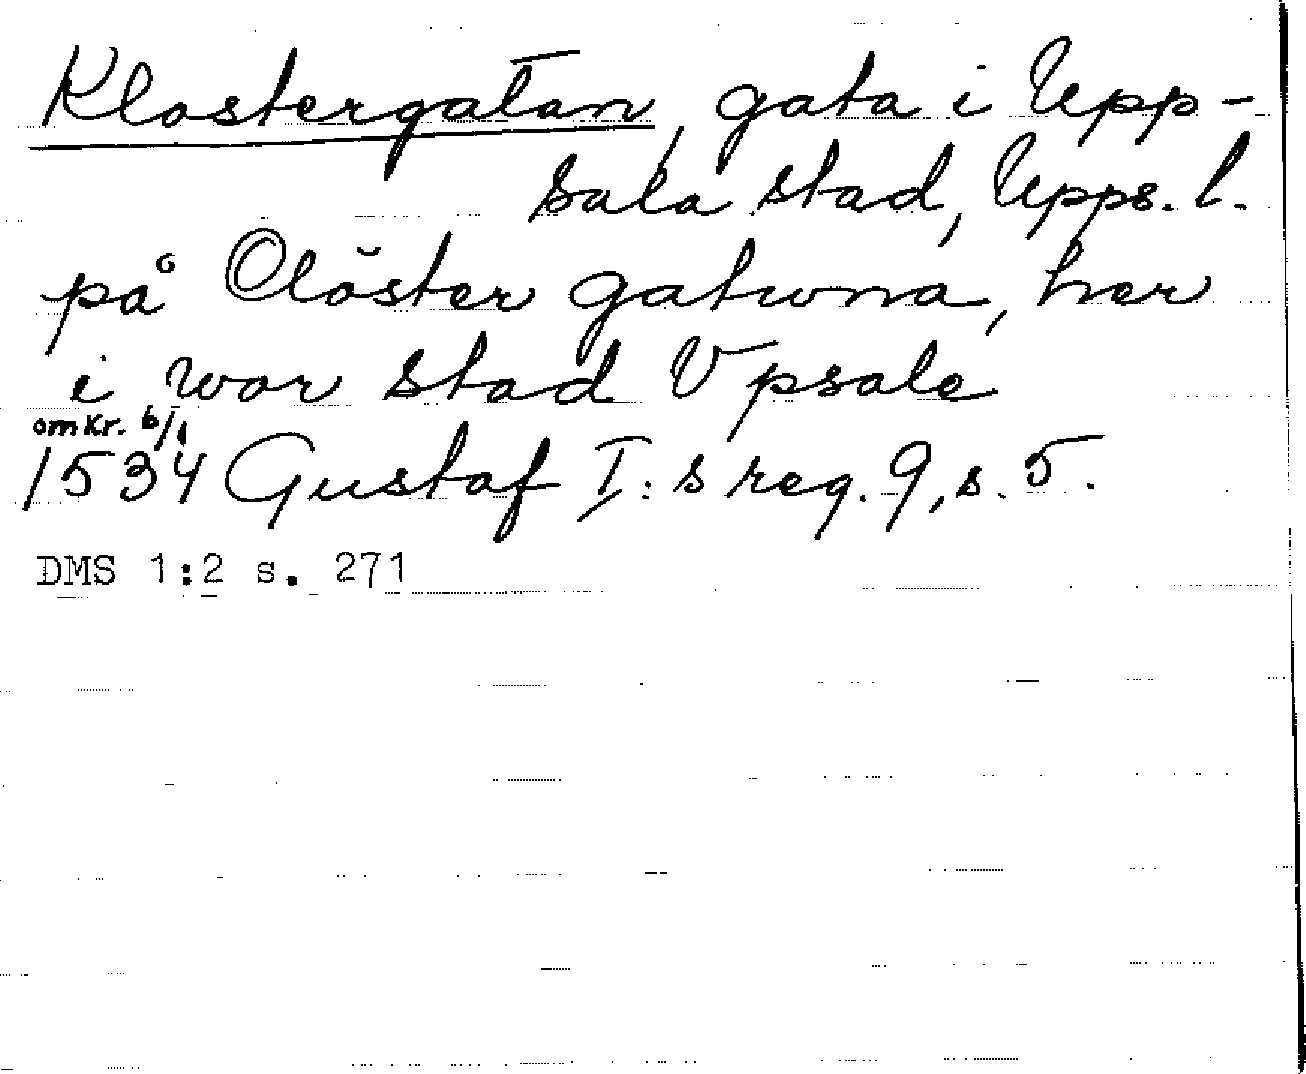 Klostergatan, gata i Upp-
sala stad, Upps. l.
på Clöster gatwna, her
i wor stad Vpsale
omkr. 6/1
1534 Gustaf I:s reg. 9, s. 5.
DMS 1:2 s. 271